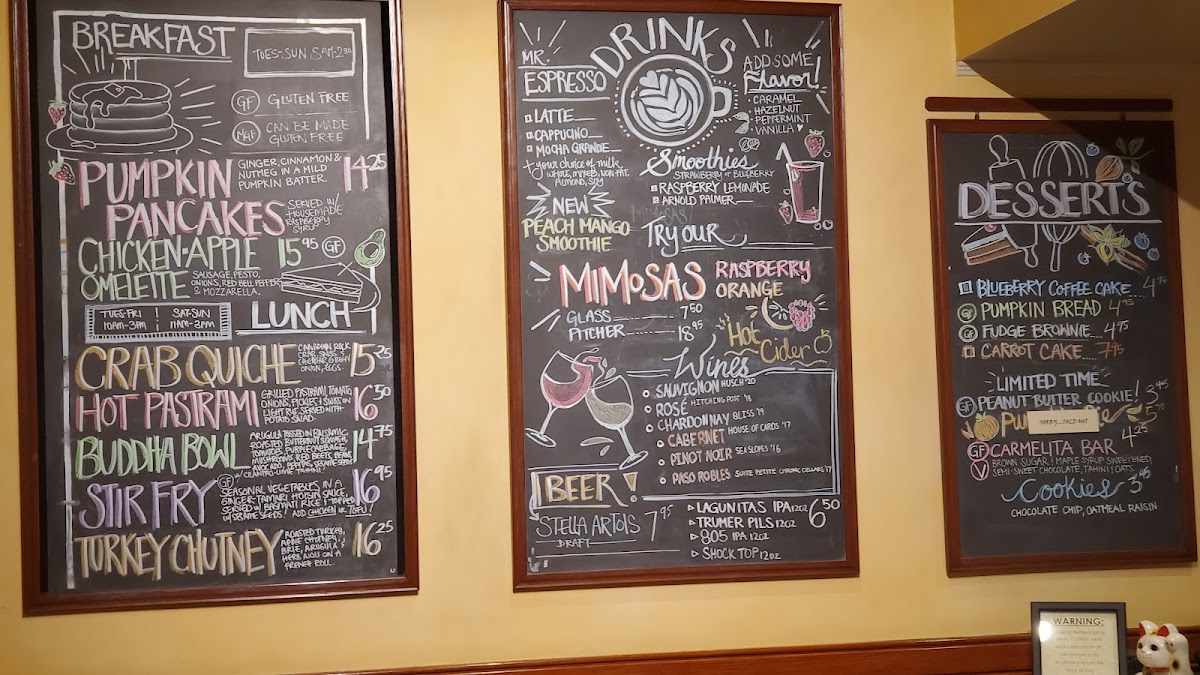 BREAKFAST
TUES-SUN 8AM-2:30
GF GLUTEN FREE
MGF CAN BE MADE
GLUTEN FREE
PUMPKIN
PANCAKES
GINGER, CINNAMON &
NUTMEG IN A MILD
PUMPKIN BATTER.
SERVED W/
HOUSEMADE
RASPBERRY
SYRUP
14 25
CHICKEN-APPLE
OMELETTE
15 95 GF
SAUSAGE, PESTO,
ONIONS, RED BELL PEPPER
& MOZZARELLA.
TUES-FRI
10AM-3PM
SAT-SUN
11AM-2PM
LUNCH
CRAB QUICHE
ONION, EGGS.
15 25
HOT PASTRAMI
GRILLED PASTRAMI, TOMATO,
ONIONS, PICKLES & SWISS ON
LIGHT RYE SERVED WITH
POTATO SALAD
16 50
BUDDHA BOWL
ARUGULA TOSSED IN BALSAMIC,
ROASTED BUTTERNUT SQUASH,
TOMATOES, PURPLE CABBAGE,
MUSHROOMS, RED BEETS,
AVOCADO,
14 75
STIR FRY
GF
SEASONAL VEGETABLES IN A
GINGER-TAMARI HOISIN SAUCE,
SERVED W/ BASMATI RICE & TOPPED
W/ SESAME SEEDS! ADD CHICKEN OR TOFU!
16 95
TURKEY CHUTNEY
ROASTED TURKEY,
APPLE CHUTNEY,
BRIE, ARUGULA &
HERB AIOLI ON A
FRENCH ROLL.
16 25
DRINKS
MR.
ESPRESSO
LATTE
CAPPUCINO
MOCHA GRANDE
+ your choice of milk
WHOLE, MIXED, NON FAT,
ALMOND, SOY
ADD SOME
Flavor!
CARAMEL
HAZELNUT
PEPPERMINT
VANILLA
Smoothies
STRAWBERRY + BLUEBERRY
RASPBERRY LEMONADE
ARNOLD PALMER
NEW
PEACH MANGO
SMOOTHIE
MIMOSAS
TRY OUR
MIMOSAS
RASPBERRY
ORANGE
GLASS 7 50
PITCHER 18 95
Hot
Cider
Wines
SAUVIGNON HUSCH '20
ROSÉ HITCHING POST '18
CHARDONNAY BLISS '19
CABERNET HOUSE OF CARDS '17
PINOT NOIR SEA SLOPES '16
PASO ROBLES SUITE PETITE CHRONIC CELLARS '17
BEER!
STELLA ARTOIS 7 95
DRAFT
LAGUNITAS IPA 12OZ
TRUMER PILS 12OZ
805 IPA 12OZ
SHOCK TOP 12OZ
6 50
DESSERTS
BLUEBERRY COFFEE CAKE 4
GF PUMPKIN BREAD 4 95
GF FUDGE BROWNIE 4 75
CARROT CAKE 7 95
LIMITED TIME
GF PEANUT BUTTER COOKIE! 3 95
SORRY...SOLD OUT
5 75
GF CARMELITA BAR 4 25
V BROWN SUGAR & MAPLE SYRUP SWEETENED,
SEMI-SWEET CHOCOLATE, TAHINI & OATS
Cookies 3 45
CHOCOLATE CHIP, OATMEAL RAISIN
WARNING: